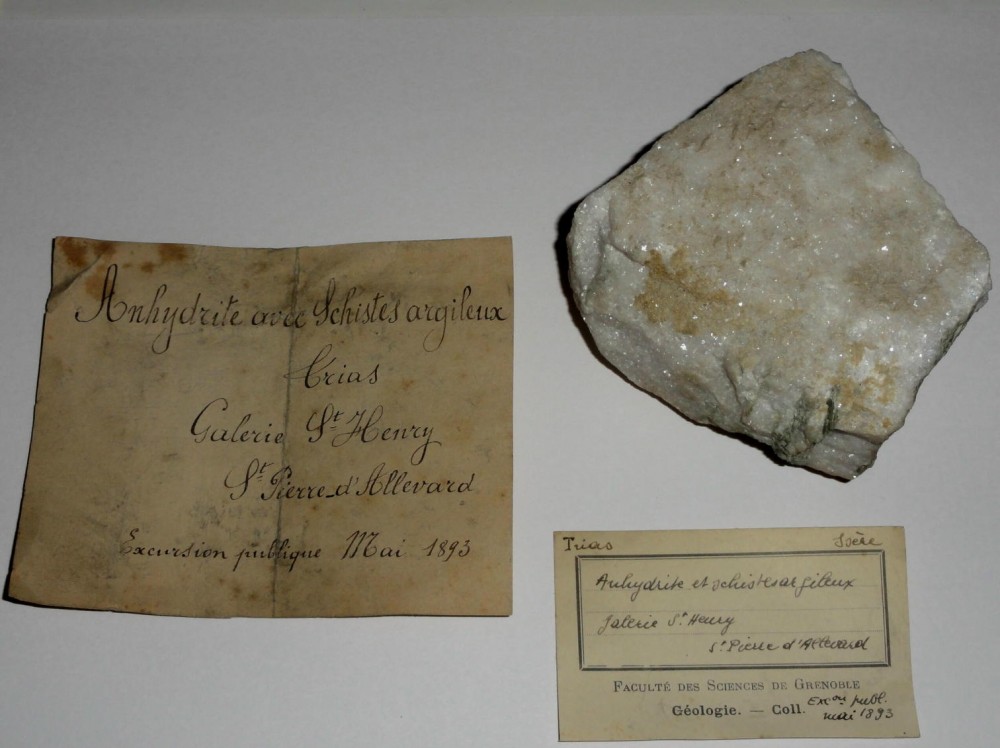 Anhydrite avec Schistes argileux
Trias
Galerie St Henry
St Pierre-d'Allevard
Excursion publique Mai 1893
Trias Isère
Anhydrite et schistes argileux
Galerie St Henry
St Pierre d'Allevard
FACULTÉ DES SCIENCES DE GRENOBLE
Géologie. — Coll. Excon publ.
mai 1893